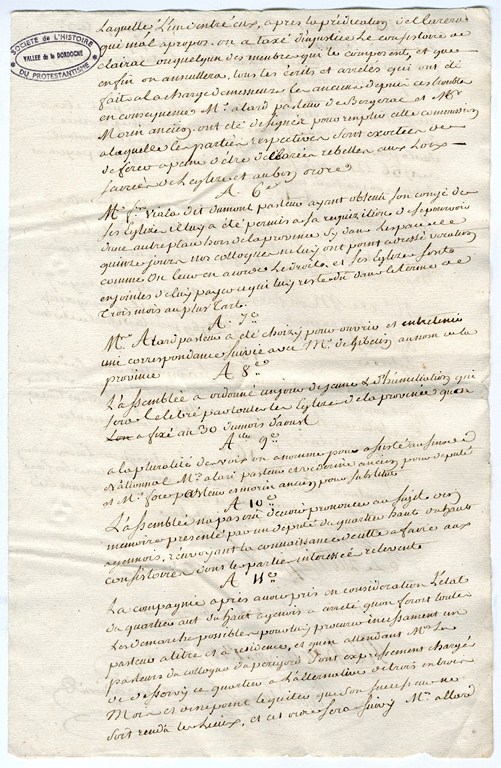 SOCIÉTÉ de L'HISTOIRE
VALLÉE de la DORDOGNE
DU PROTESTANTISME
Laquelle L'un entr'eux, après la prédication déclarera
que mal apropos on a taxé d'injustice Le consistoire de
clairac ou quelqun des membres qui le composent, et que
enfin on annullera tous les écrits et arretés qui ont été
faits a la charge de messieurs les anciens depuis ces troubles
en consequence Mr. alard pasteur de Bergerac et Mr.
Morin ancien ont été designé pour remplir cette commission
a laquelle les parties respectives sont exortées de
déferer a peine d'etre declarées rebelles aux Loix
sacrées de L'eglise et au bon ordre
A. 6e.
Mr. Viala dit Dumont pasteur ayant obtenu son congé de
ses Eglises il luy a été permis a sa requizition de se pourvoir
d'une autre place hors de la province Sy dans L'espace de
quinze jours nos colloques ne luy ont point adressé vocation
comme On leur en acorde Le droit, et ses Eglises sont
enjointes de luy payer ce qui luy reste du dans le terme de
Trois mois au plus tard.
A. 7e.
Mr. Alard pasteur a été choizy pour ouvrir et entretenir
une correspondance suivie avec Mr. de Gebelin au nom de la
province
A 8e.
L'assemblée a ordonné un jour de jeune & d'humiliation qui
sera celebré par toutes les Eglises de la province qu'on
a fixé au 30 du mois d'aoust
A. 9e.
a la pluralité des voix on a nommé pour assister au sinode
National Mr. alard pasteur et ancien pour deputés
et Mr. pasteur et morin ancien pour substituts
A 10e.
L'assemblée n'a pas cru devoir prononcer au sujet des
memoires presenté par un deputé du quartier haut
agenois, renvoyant la connaissance de cette affaire aux
consistoires dont les parties interessées relevent
A 11e.
La compagnie après avoir pris en consideration L'état
du quartier du haut agenois a arreté qu'on feroit toutes
les demarches possibles pour luy procurer incessament un
pasteur a titre et a residence, et qu'en attendant Mrs. les
pasteurs du colloque du perigord sont expressement chargés
de desservir ce quartier a L'alternative de trois en trois
Mois et ce neuf
soit rendu les lieux, et cet ordre sera suivy Mr. allard